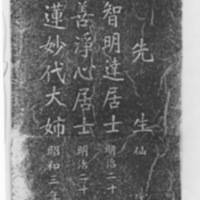 先生仙
智明達居士 明治二十
善淨心居士 明治二十
蓮妙代大姉 昭和三年